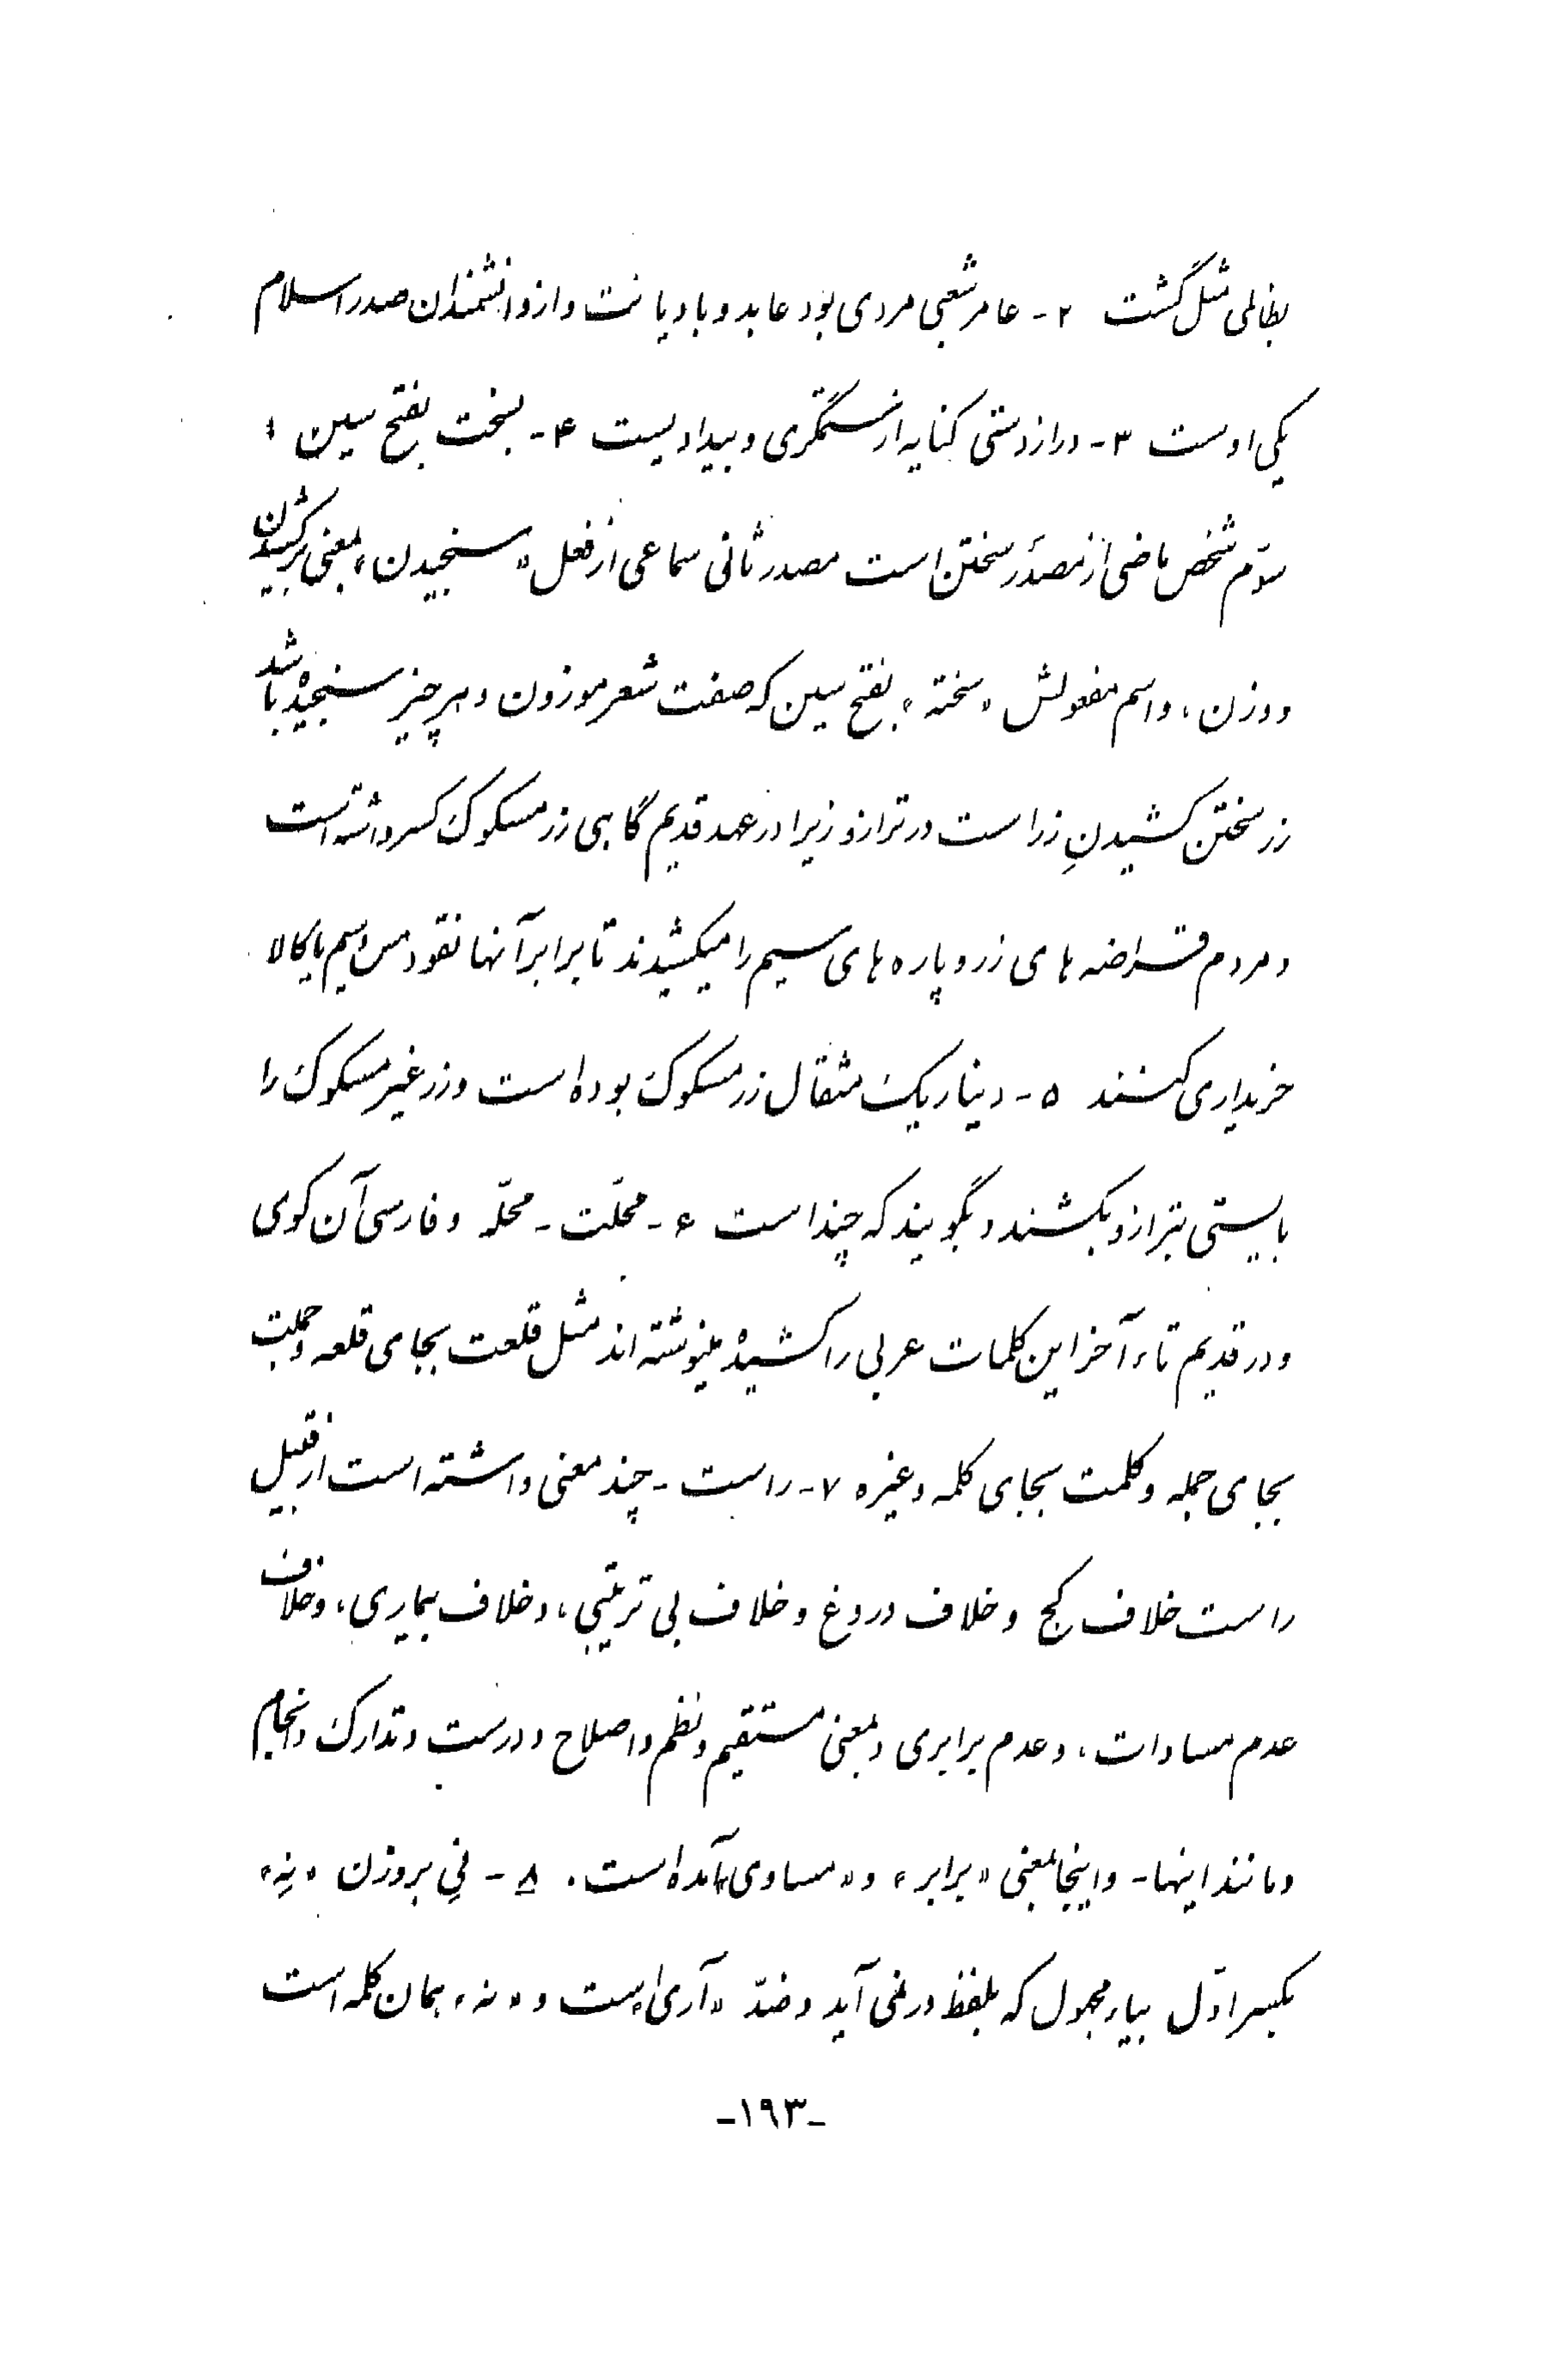 بظالمی مثل گشت ۲- عامر شعبی مردی بود عابد و با دیانت و از دانشمندان صدر اسلام
یکی اوست ۳- درازدستی کنایه از ستمگری و بیدادیست ۴- بسخت بفتح سین،
سوّم شخص ماضی از مصدر سختن است مصدر ثانی سماعی از فعل «سنجیدن» بمعنی برکشیدن
و وزن، و اسم مفعولش «سخته» بفتح سین که صفت شعر موزون و هر چیز سنجیده باشد
زر سختن کشیدنِ زر است در ترازو زیرا در عهد قدیم گاهی زر مسکوک کسر داشته است
و مردم قراضه های زر و پاره های سیم را میکشیدند تا برابر آنها نقود مس و سیم یا کالا
خریداری کنند ۵- دینار یک مثقال زر مسکوک بوده است و زر غیر مسکوک را
بایستی بترازو بکشند و بگویند که چند است ۶- محلّت - محلّه و فارسی آن کوی
و در قدیم تاء آخر این کلمات عربی را کشیده مینوشته اند مثل قلعت بجای قلعه و جملت
بجای جمله و کلمت بجای کلمه و غیره ۷- راست - چند معنی داشته است از قبیل
راست خلاف کج و خلاف دروغ و خلاف بی ترتیبی، و خلاف بیماری، و خلاف
عدم مساوات، و عدم برابری و بمعنی مستقیم و نظم و اصلاح و درست و تدارک و انجام
و مانند اینها - و اینجا بمعنی «برابر» و «مساوی» آمده است. ۸- نیِ بروزن «نِه»
بکسر اوّل بیاء مجهول که بلفظ درنمی آید و ضدّ «آری» است و «نه» همان کلمه است
-۱۹۳-